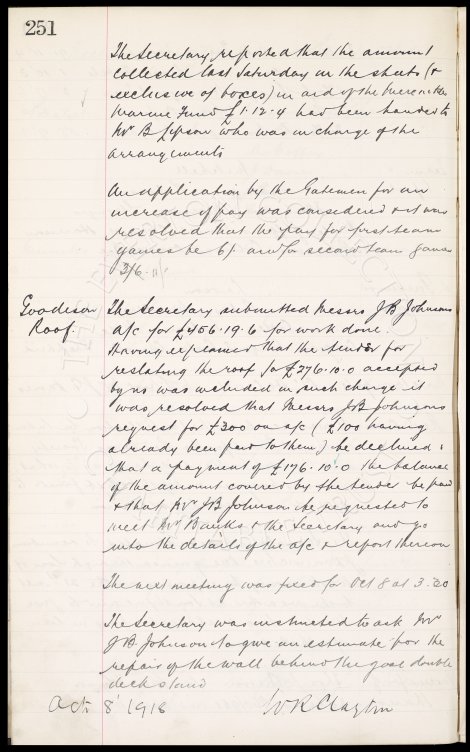 251
The Secretary reported that the amount
collected last Saturday in the streets (&
exclusive of boxes) in aid of the Mercantile
Marine Fund £1.12.4 had been handed to
Mr B Lipson who was in charge of the
arrangements
An application by the Gatemen for an
increase of pay was considered & it was
resolved that the pay for first team
games be 6/- and for second team games
3/6.
Goodison
Roof.
The Secretary submitted Messrs J B Johnsons
a/c for £456.19.6 for work done.
Having explained that the tender for
reslating the roof for £276.10.0 accepted
by us was included in such charge it
was resolved that Messrs J B Johnsons
request for £200 on a/c (£100 having
already been paid to them) be declined &
that a payment of £176.10.0 the balance
of the amount covered by the tender be paid
& that Mr J B Johnson be requested to
meet Mr Banks & the Secretary and go
into the details of the a/c & report thereon
The next meeting was fixed for Oct 8 at 3.20
The Secretary was instructed to ask Mr
J B Johnson to give an estimate for the
repair of the wall behind the goal double
deck stand
Oct 8 1918
W R Clayton